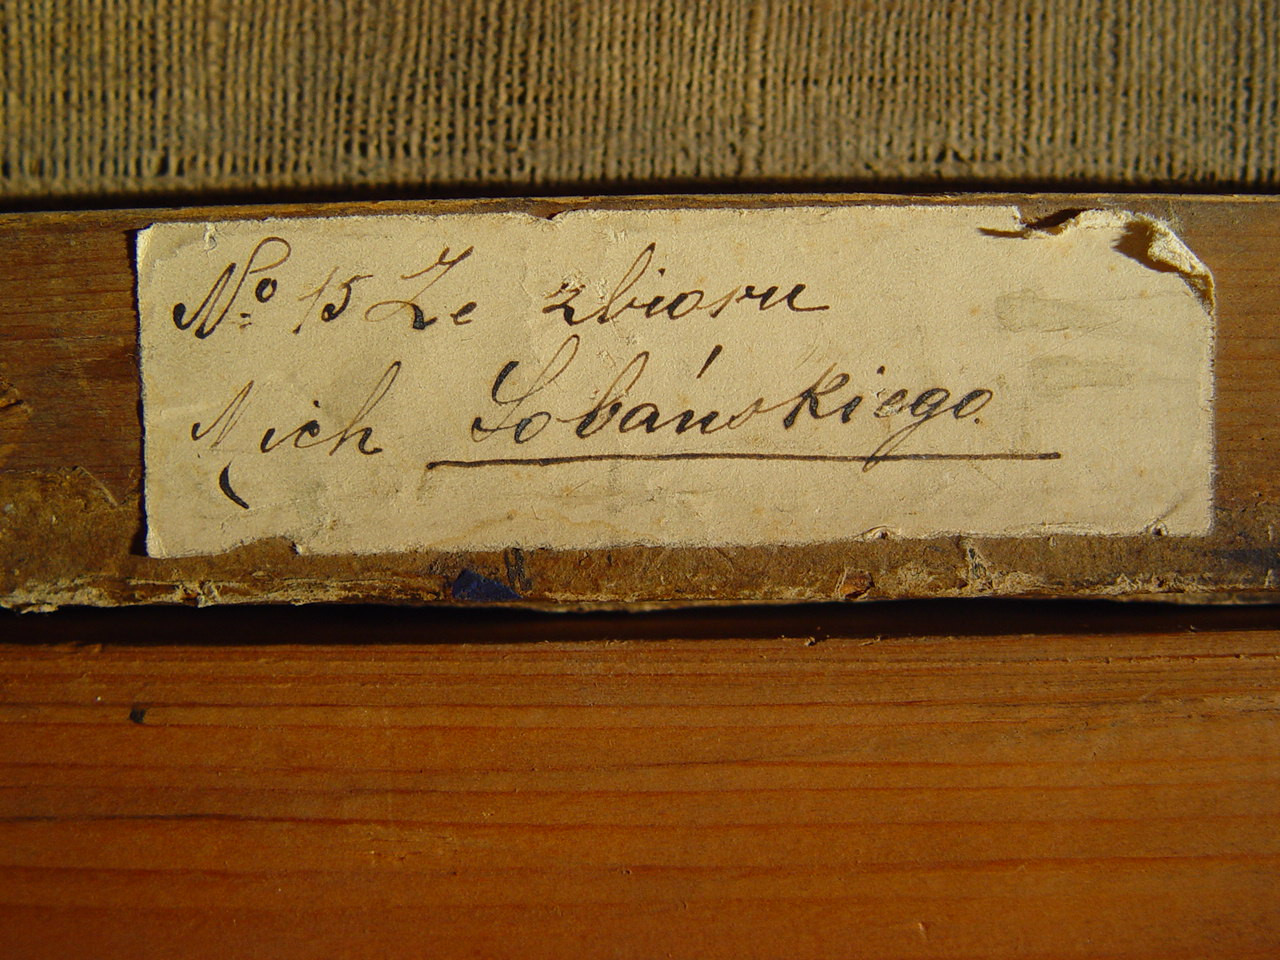 No 15 Ze zbioru
Mich Sobańskiego.